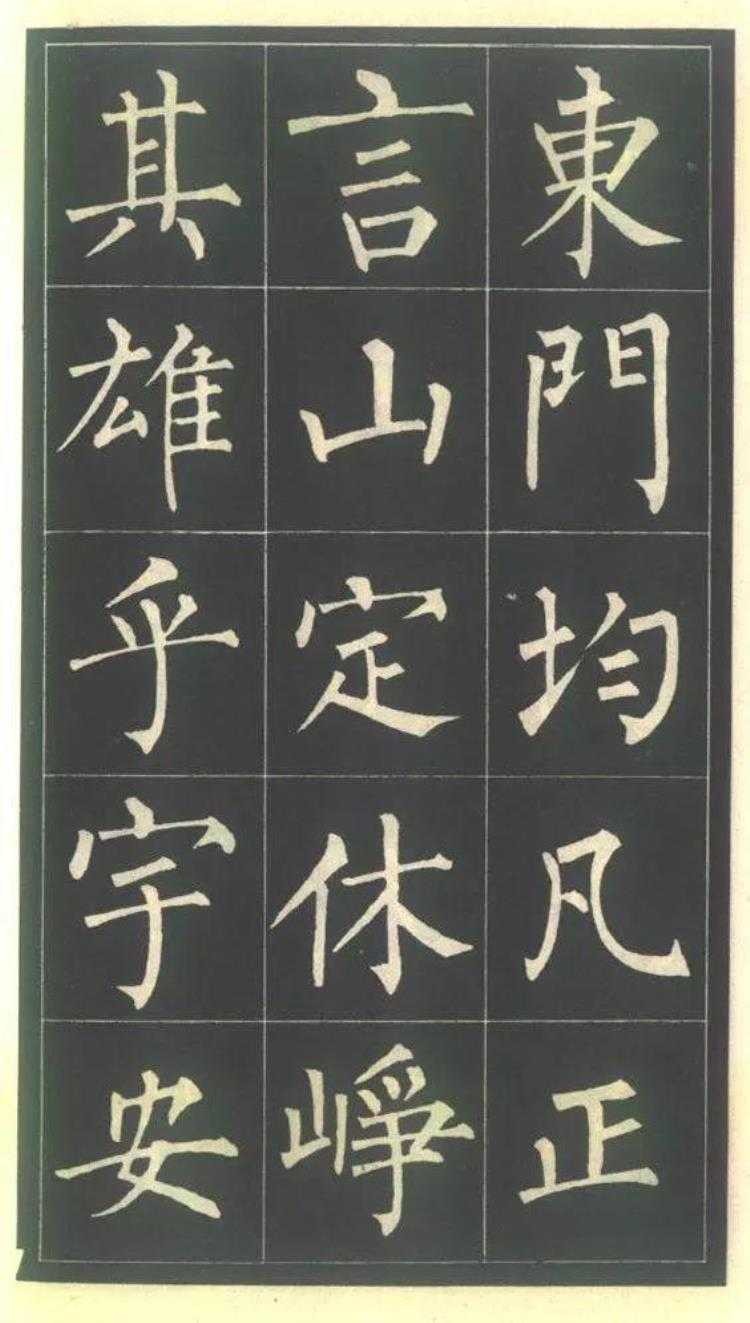 東門均凡正
言山定休崢
其雄乎宇安